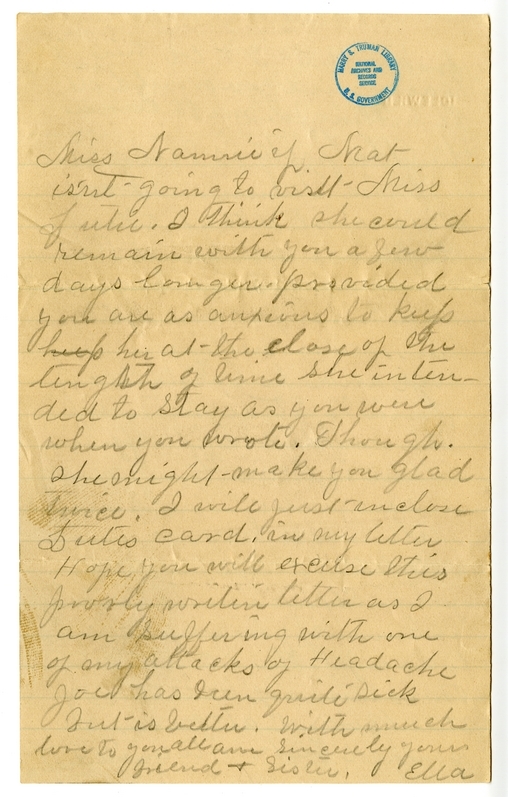 HARRY S. TRUMAN LIBRARY
NATIONAL
ARCHIVES AND
RECORDS
SERVICE
U. S. GOVERNMENT
Miss Nannie if Mat
isn't going to visit Miss
I think she could
remain with you a few
days longer. provided
you are as anxious to keep
keep her at the close of the
lenghth of time she inten-
ded to stay as you were
when you wrote. Though.
she might make you glad
twice. I will just inclose
card. in my letter
Hope you will excuse this
poorly writen letter as I
am suffering with one
of my attacks of Headache
Joe has been quite sick
but is better. With much
love to you all am sincerely your
friend + Sister. Ella